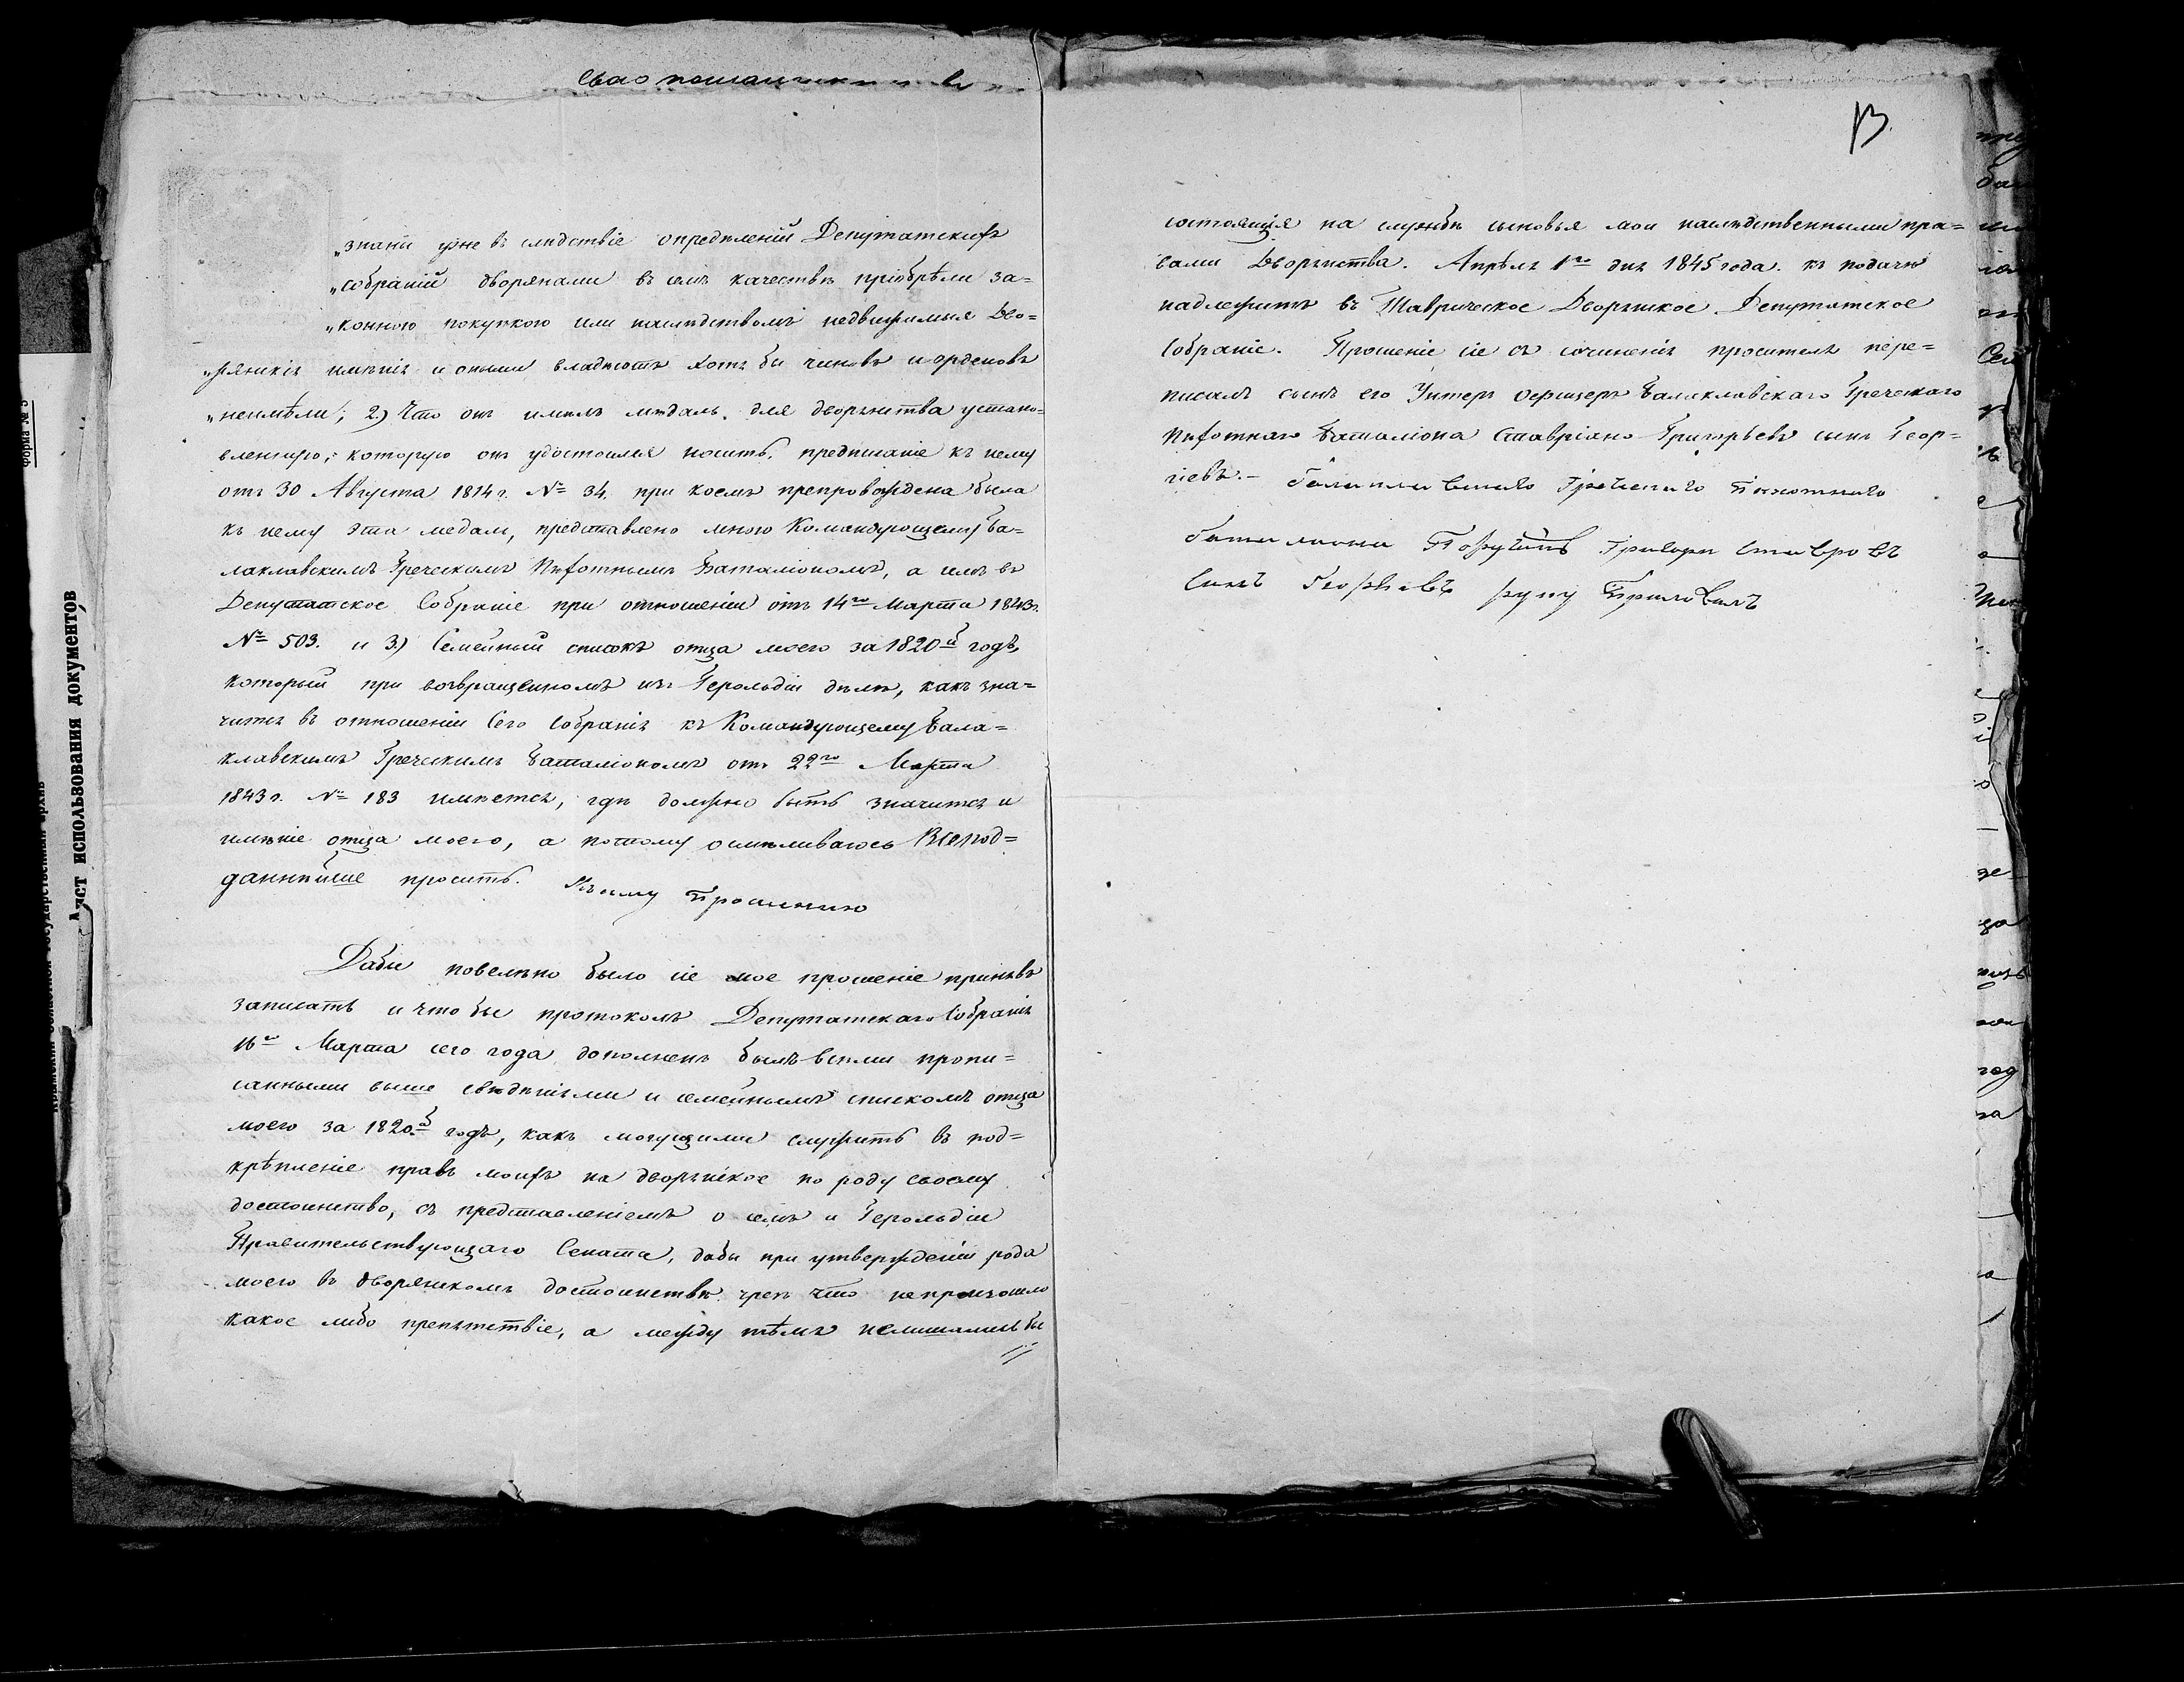 „знаны уже въ слѣдствіе опредѣленій Депутатскихъ
„собраній дворянами въ семъ качествѣ пріобрѣли за=
„конною покупкою или наслѣдствомъ недвижимыя Дво=
„рянскія имѣнія и оными владѣютъ хотя бы чиновъ и орденовъ
„неимѣли; 2.) Что онъ имѣлъ мѣдаль для дворянства устано=
вленную, которую онъ удостоился носить, предписаніе къ нему
отъ 30 Августа 1814 г. № 34. при коемъ препровождена была
къ нему эта медаль, представлено мною Командующему Ба=
лаклавскимъ Греческимъ Пѣхотнымъ Баталіономъ, а имъ въ
Депутатское Собраніе при отношеніи отъ 14го Марта 1843 г.
№ 503. и 3.) Семейный списокъ отца моего за 1820й годъ,
который при возвращенномъ изъ Герольдіи дѣлѣ, какъ зна=
чится въ отношеніи Сего Собранія къ Командующему Бала=
клавскимъ Греческимъ Баталіономъ отъ 22го Марта
1843 г. № 183 имѣется, гдѣ должно быть значится и
имѣніе отца моего, а потому осмѣливаюсь Всепод=
даннѣйше просить. Къ сему Прошению
Дабы повелѣно было сіе мое прошеніе принявъ
записать и что бы протоколъ Депутатскаго Собранія
16го Марта сего года дополненъ былъ всѣми пропи=
санными выше свѣдѣніями и семейнымъ спискомъ отца
моего за 1820й годъ, какъ могущими служить въ под=
крѣпленіе правъ моихъ на дворянское по роду своему
достоинство, съ представленіемъ о семъ и Герольдіи
Правительствующаго Сената, дабы при утвержденіи рода
моего въ дворянскомъ достоинствѣ чрезъ что непроизошло
какое либо препятствіе, а между тѣмъ нелишались бы
13.
состоящія на службѣ сыновья мои наслѣдственными пра=
вами Дворянства. Апрѣля 1го дня 1845 года. къ подачѣ
надлежитъ въ Таврическое Дворянское Депутатское
Собраніе. Прошеніе сіе съ сочиненія просителя пере=
писалъ сынъ его Унтеръ офицеръ Балаклавскаго Греческаго
Пѣхотнаго Баталіона Ставріано Григорьевъ сынъ Геор=
гіевъ.– Балаклавскаго Греческаго Пехотнаго
Баталиона Поручикъ Григори Ставровъ
Синъ Георгіевъ руку Приложилъ
Лист использования документов
Форма № 5